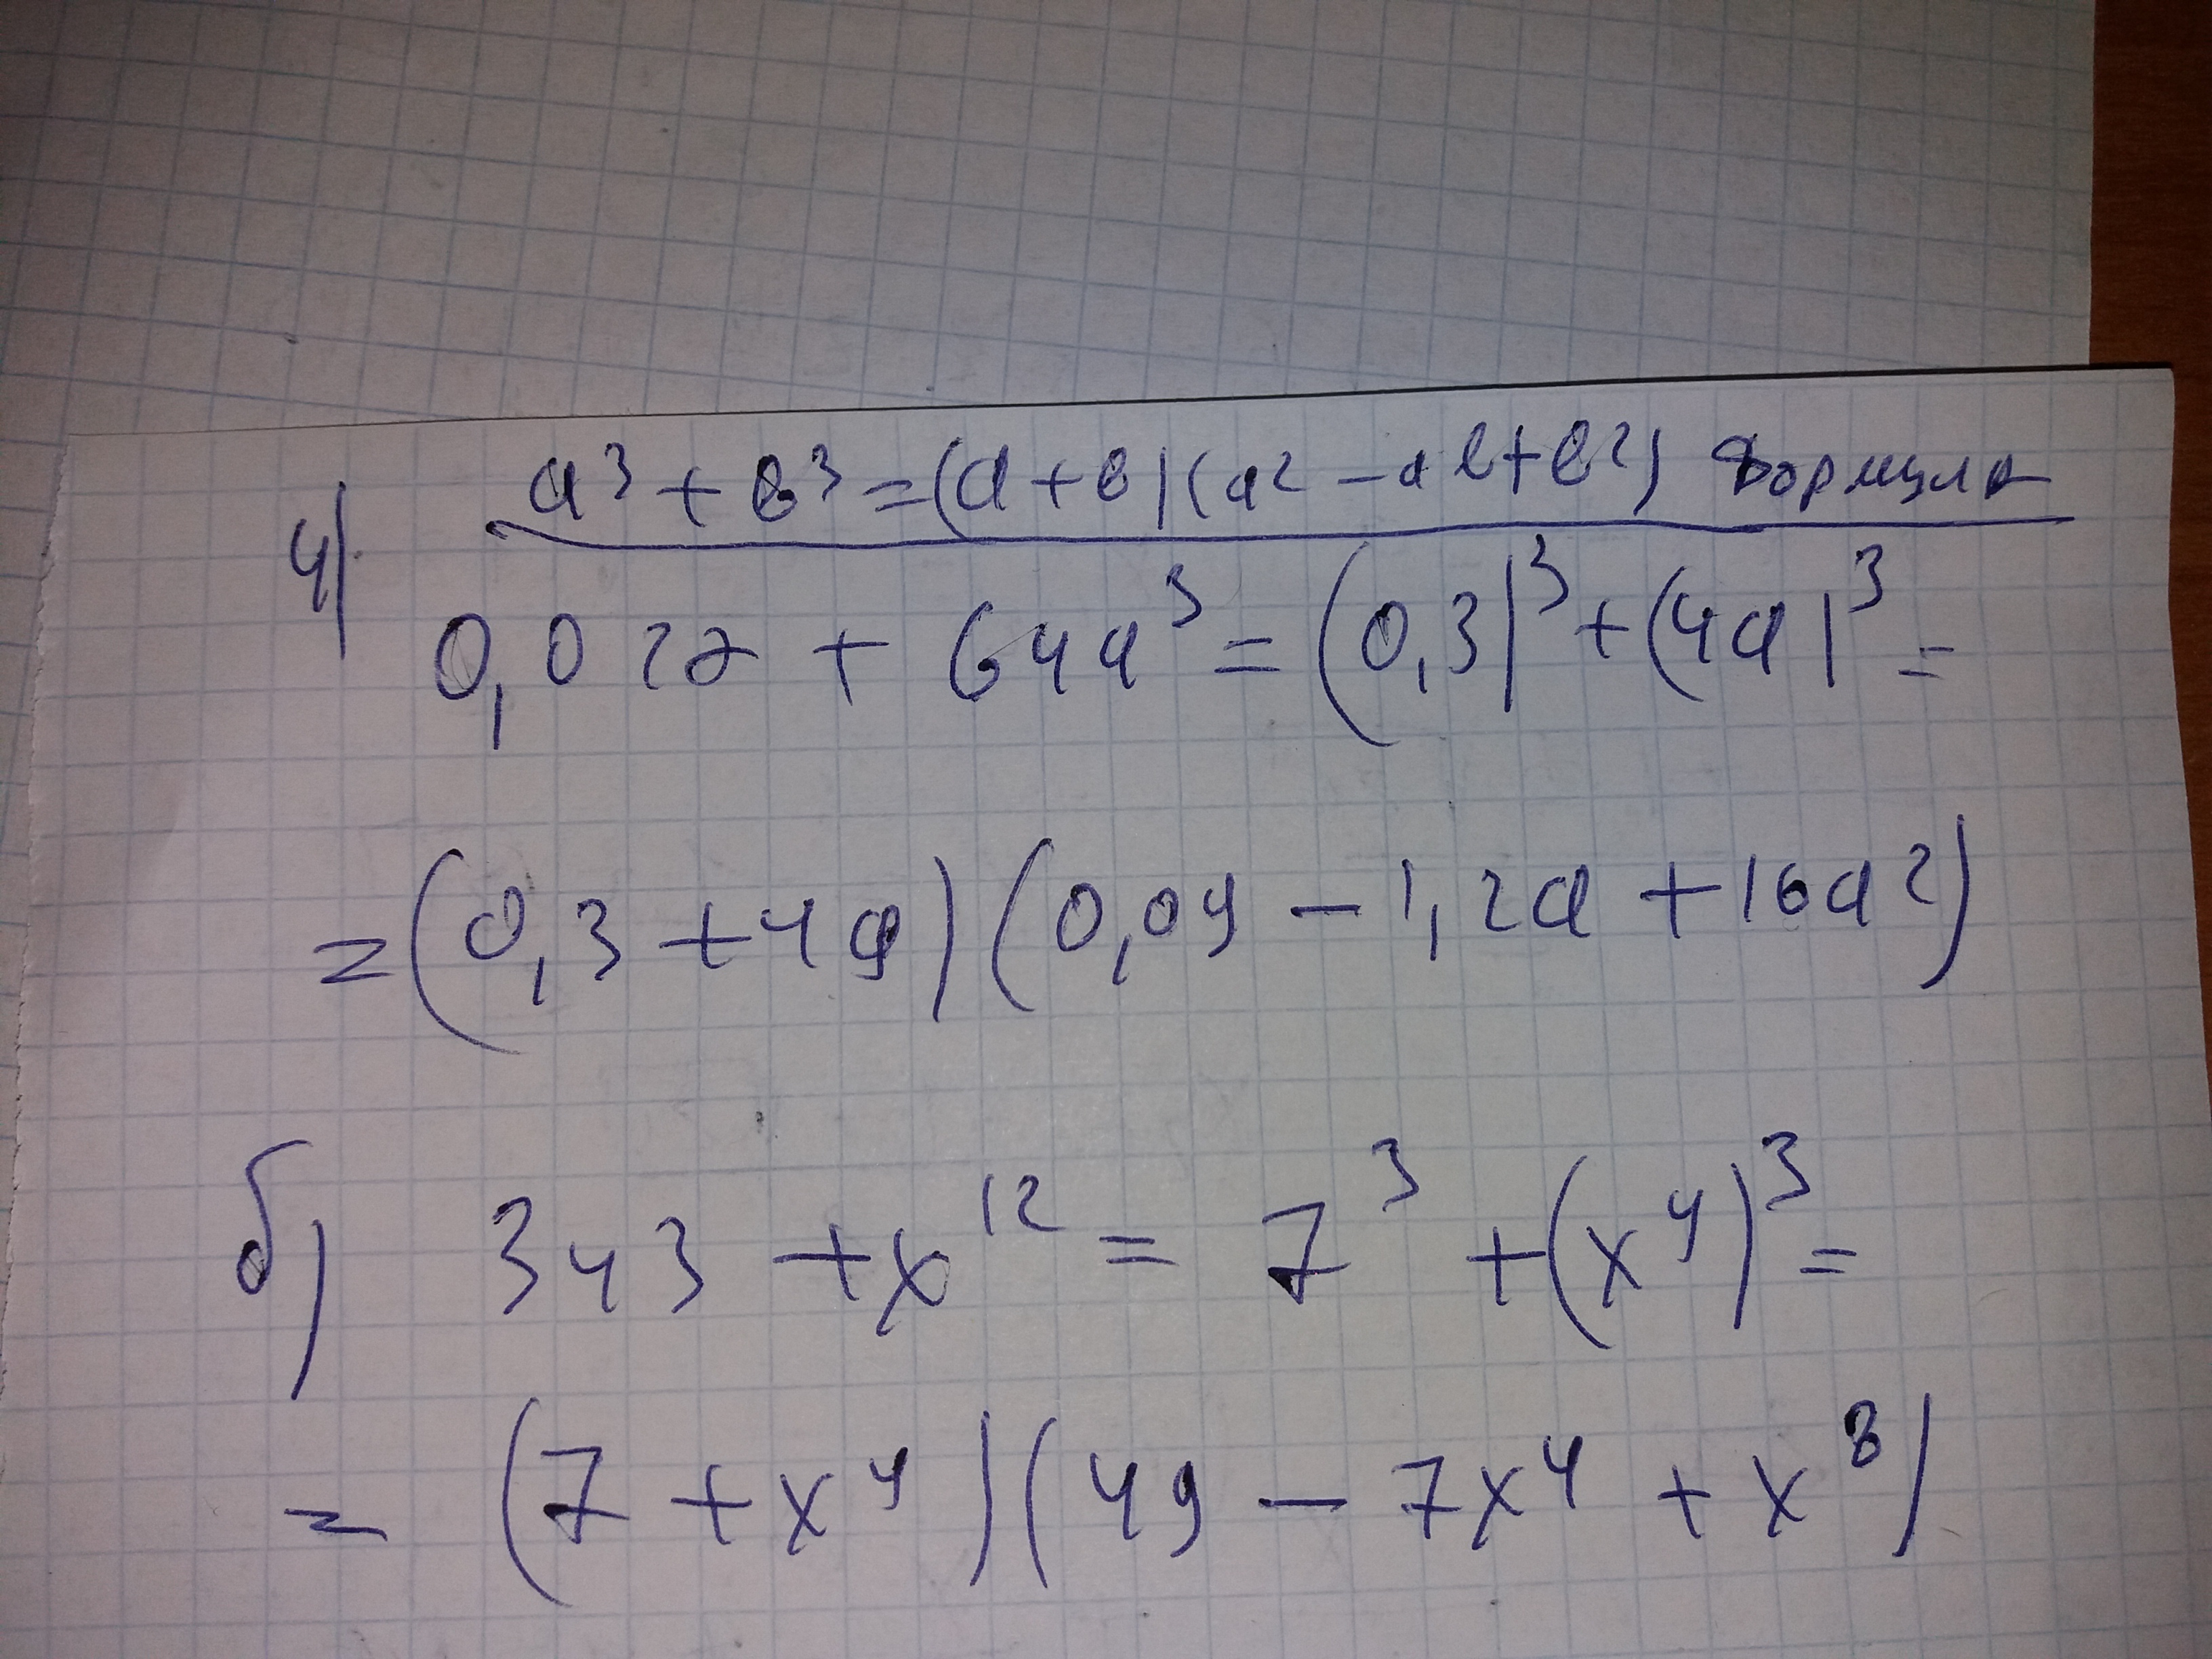 a³ + в³ = (a + в)(a² - aв + в²) Формула
4) 0,027 + 64a³ = (0,3)³ + (4a)³ =
= (0,3 + 4a)(0,09 - 1,2a + 16a²)
б) 343 + x¹² = 7³ + (x⁴)³ =
= (7 + x⁴)(49 - 7x⁴ + x⁸)